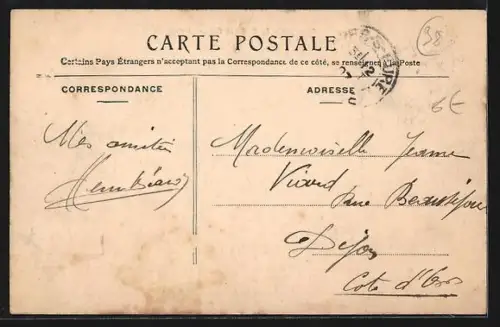 CARTE POSTALE
Certains Pays Étrangers n'acceptant pas la Correspondance de ce côté, se renseigner à la Poste
CORRESPONDANCE
ADRESSE
38
6€
Mes amitiés
Mademoiselle Jeanne
Viard rue Beauséjour
Dijon
Cote d'Or